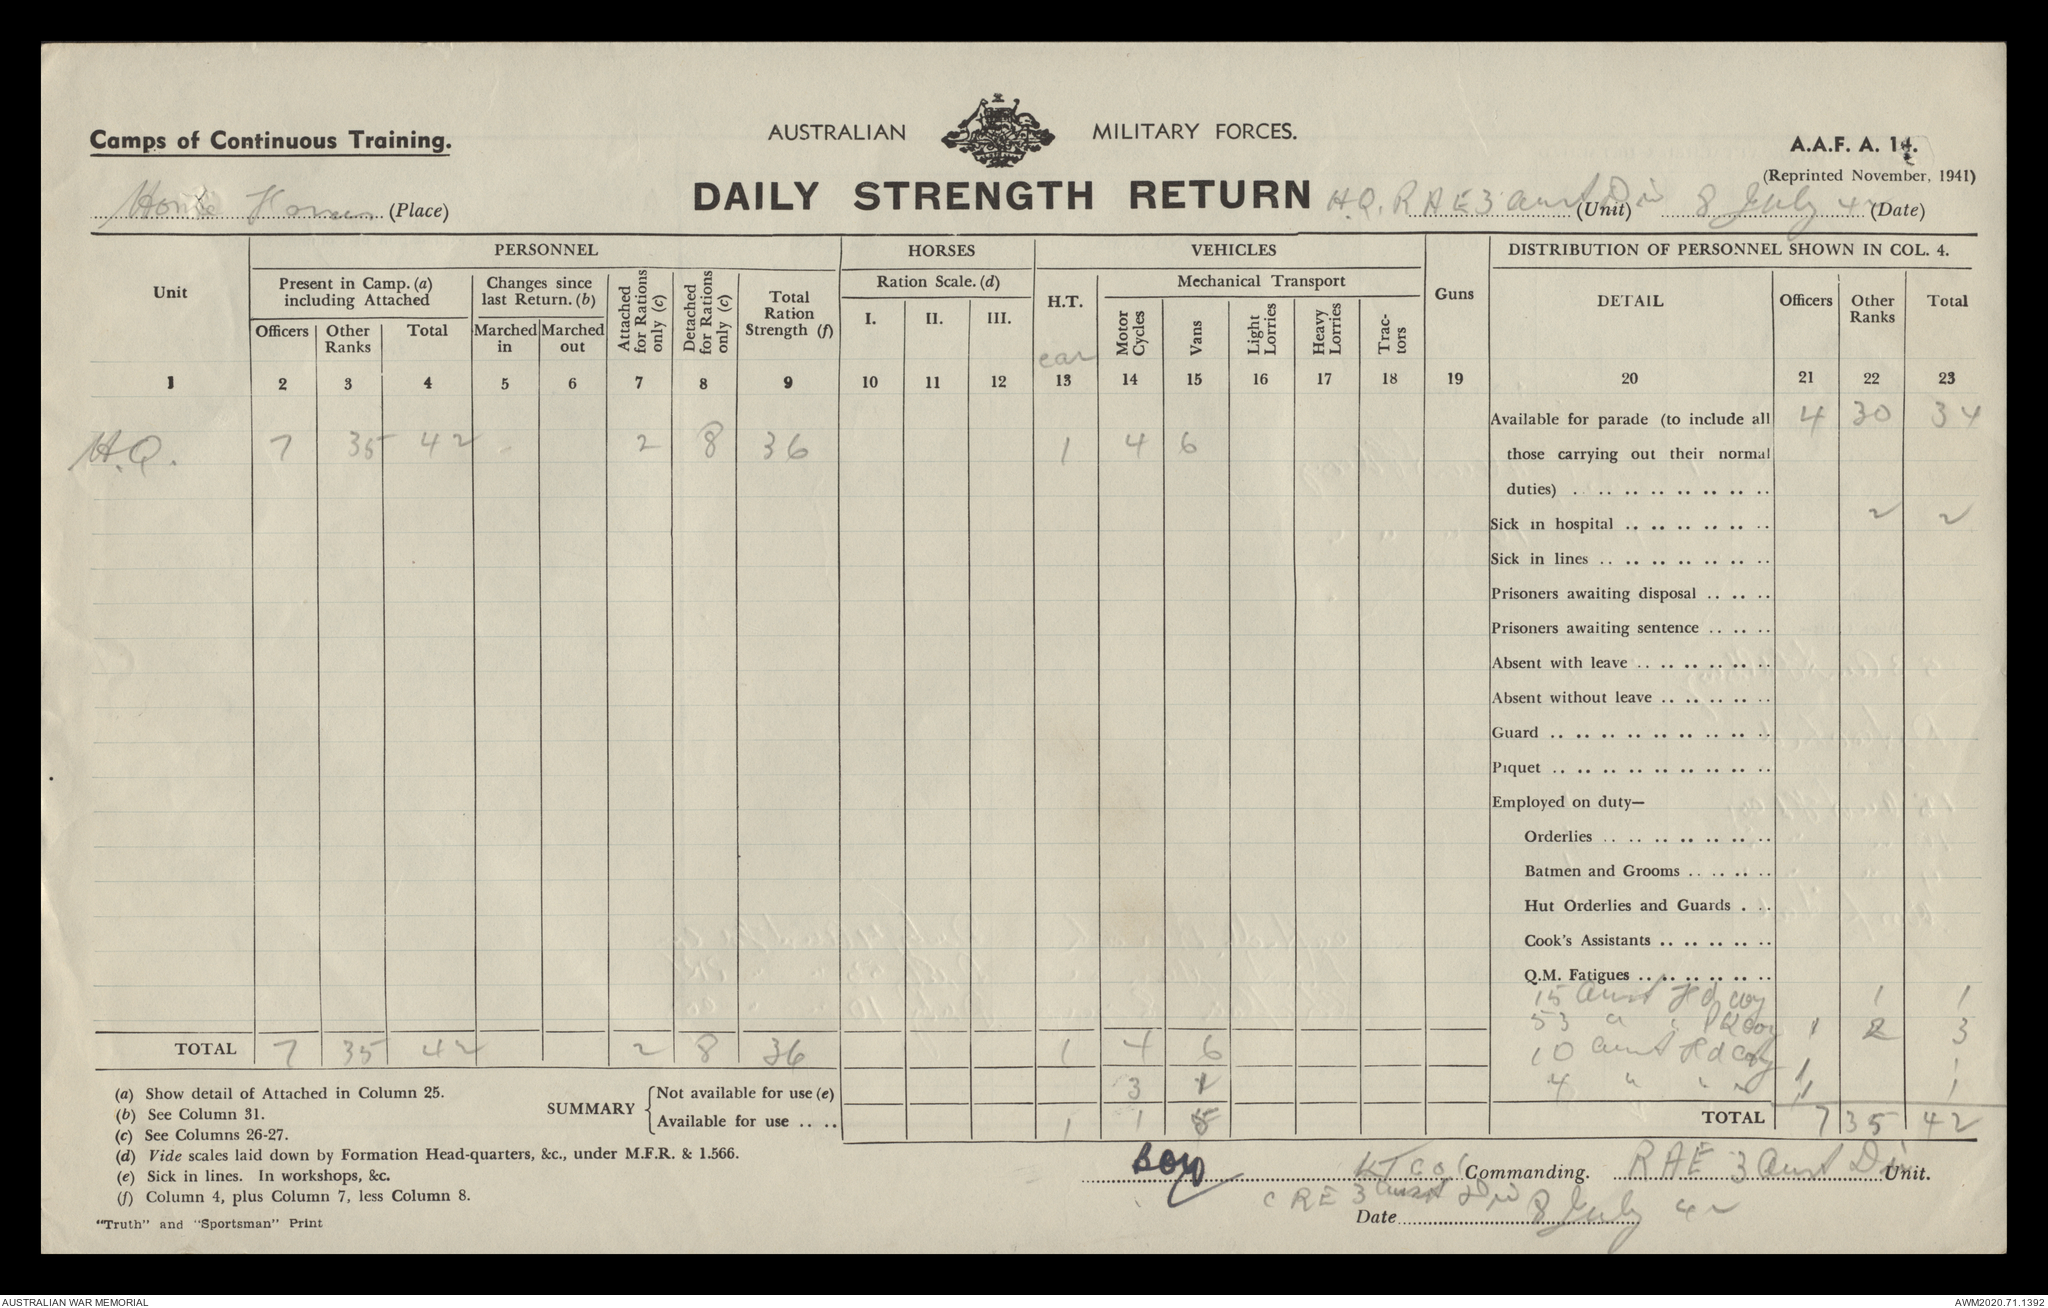 Camps of Continuous Training.
AUSTRALIAN MILITARY FORCES.
A.A.F. A. 14.
(Reprinted November, 1941)
(Place)
DAILY STRENGTH RETURN
H.Q. RAE 3 Aust Div (Unit) 8 July 42 (Date)
PERSONNEL HORSES VEHICLES DISTRIBUTION OF PERSONNEL SHOWN IN COL. 4.
Unit
Present in Camp. (a) including Attached
Changes since last Return. (b)
Attached for Rations only (c)
Detached for Rations only (c)
Total Ration Strength (f)
Ration Scale. (d)
H.T.
car
Mechanical Transport
Guns
DETAIL Officers Other Ranks Total
Officers Other Ranks Total Marched in Marched out
I. II. III.
Motor Cycles Vans Light Lorries Heavy Lorries Trac- tors
1 2 3 4 5 6 7 8 9 10 11 12 13 14 15 16 17 18 19 20 21 22 23
H.Q. 7 35 42 - 2 8 36 1 4 6
Available for parade (to include all 4 30 34
those carrying out their normal
duties) .. .. .. .. .. .. .. ..
Sick in hospital .. .. .. .. .. .. 2 2
Sick in lines .. .. .. .. .. .. ..
Prisoners awaiting disposal .. .. ..
Prisoners awaiting sentence .. .. ..
Absent with leave .. .. .. .. .. ..
Absent without leave .. .. .. .. ..
Guard .. .. .. .. .. .. .. .. ..
Piquet .. .. .. .. .. .. .. .. ..
Employed on duty—
Orderlies .. .. .. .. .. .. ..
Batmen and Grooms .. .. .. ..
Hut Orderlies and Guards . ..
Cook's Assistants .. .. .. .. ..
Q.M. Fatigues .. .. .. .. .. ..
15 Aust Fd Coy 1 1
53 " " Pk Coy 1 2 3
10 Aust Fd Coy 1 1
4 " " " 1 1
TOTAL 7 35 42 2 8 36 1 4 6
SUMMARY
Not available for use (e) 3 1
Available for use .. .. 1 1 5
TOTAL 7 35 42
(a) Show detail of Attached in Column 25.
(b) See Column 31.
(c) See Columns 26-27.
(d) Vide scales laid down by Formation Head-quarters, &c., under M.F.R. & 1.566.
(e) Sick in lines. In workshops, &c.
(f) Column 4, plus Column 7, less Column 8.
"Truth" and "Sportsman" Print
Commanding. RAE 3 Aust Div Unit.
CRE 3 Aust Div
Date 8 July 42
AUSTRALIAN WAR MEMORIAL
AWM2020.71.1392